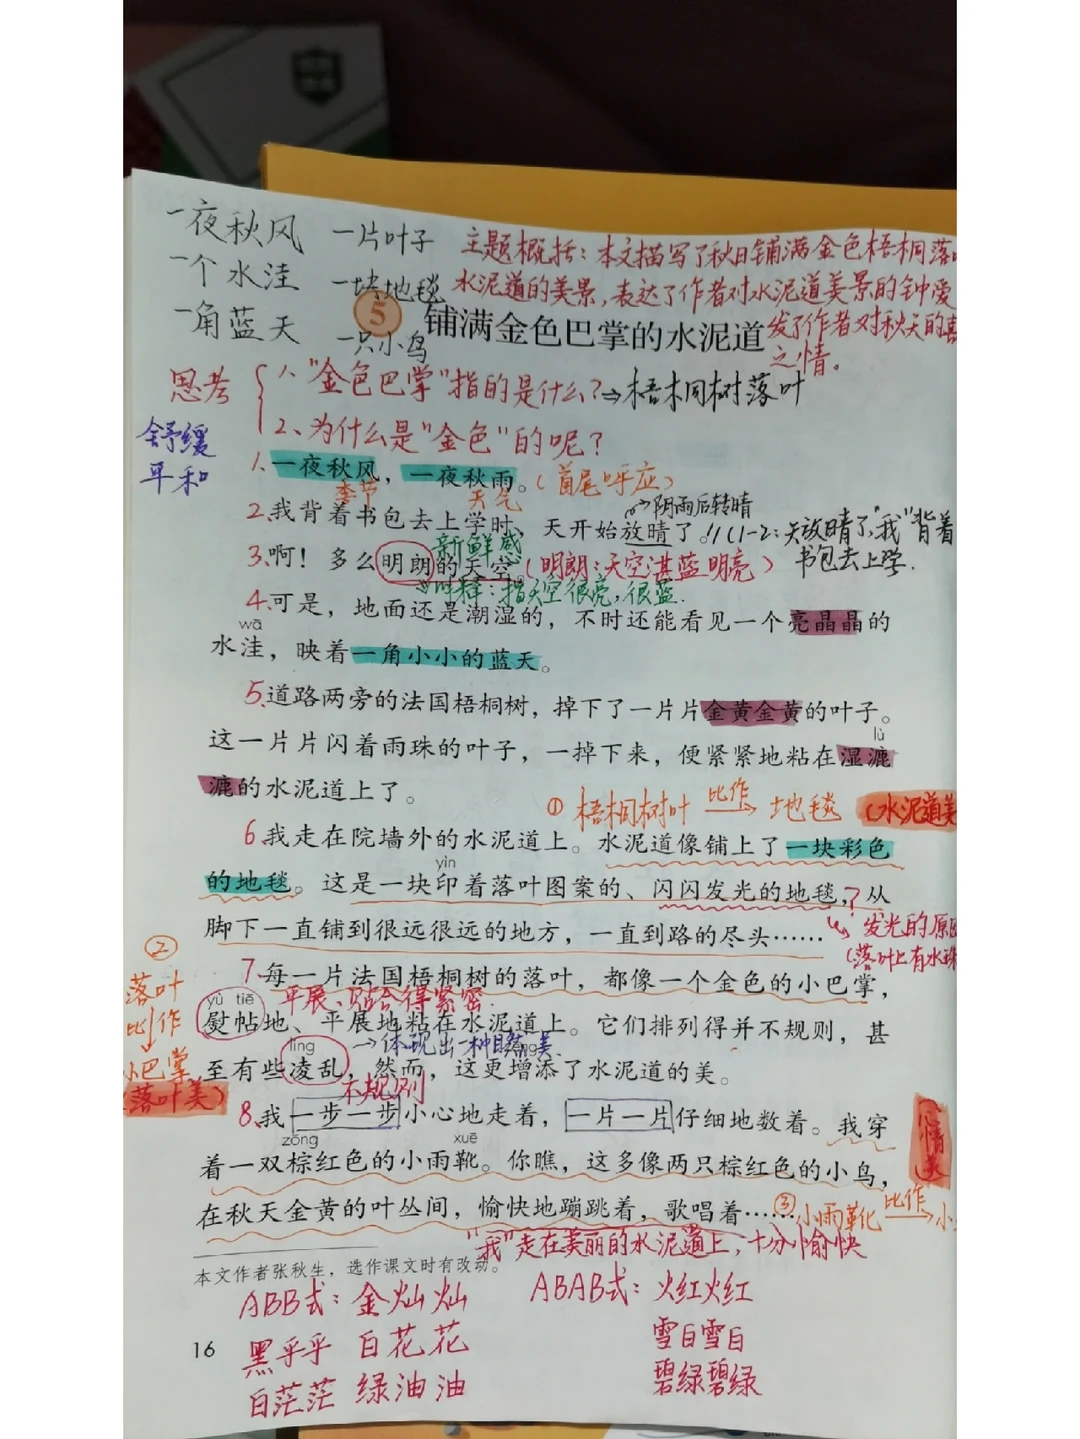 一夜秋风 一片叶子
一个水洼 一块地毯
一角蓝天 一只小鸟
主题概括：本文描写了秋日铺满金色梧桐落
水泥道的美景，表达了作者对水泥道美景的钟爱
发了作者对秋天的喜
之情。
5 铺满金色巴掌的水泥道
思考
1、"金色巴掌"指的是什么？→梧桐树落叶
2、为什么是"金色"的呢？
舒缓
平和
1、一夜秋风，一夜秋雨。（首尾呼应）
季节 天气
阴雨后转晴
2、我背着书包去上学时，天开始放晴了。//（1-2：天放晴了，"我"背着
书包去上学.
新鲜感
3、啊！多么明朗的天空。（明朗：天空湛蓝明亮）
指天空很亮，很蓝.
4、可是，地面还是潮湿的，不时还能看见一个亮晶晶的
wā
水洼，映着一角小小的蓝天。
5、道路两旁的法国梧桐树，掉下了一片片金黄金黄的叶子。
lù
这一片片闪着雨珠的叶子，一掉下来，便紧紧地粘在湿漉
漉的水泥道上了。
①梧桐树叶 比作 地毯 （水泥道美
6我走在院墙外的水泥道上。水泥道像铺上了一块彩色
yìn
的地毯。这是一块印着落叶图案的、闪闪发光的地毯，？从
脚下一直铺到很远很远的地方，一直到路的尽头……
发光的原因
（落叶上有水珠
②
落叶
比作
小巴掌
（落叶美）
7每一片法国梧桐树的落叶，都像一个金色的小巴掌，
yù tiē
平展、贴合得紧密.
熨帖地、平展地粘在水泥道上。它们排列得并不规则，甚
líng
→体现出一种自然美.
至有些凌乱，然而，这更增添了水泥道的美。
不规则
8、我一步一步小心地走着，一片一片仔细地数着。我穿
zōng xuē
着一双棕红色的小雨靴。你瞧，这多像两只棕红色的小鸟，
在秋天金黄的叶丛间，愉快地蹦跳着，歌唱着……
心情美
③小雨靴 比作 小
"我"走在美丽的水泥道上，十分愉快
本文作者张秋生，选作课文时有改动。
ABB式：金灿灿 ABAB式：火红火红
黑乎乎 白花花 雪白雪白
白茫茫 绿油油 碧绿碧绿
16